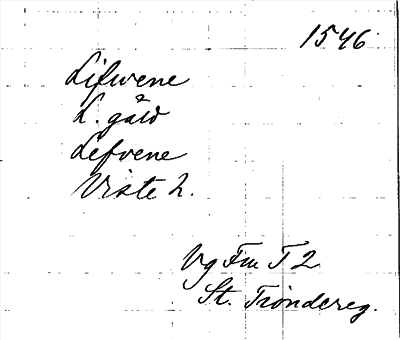 1546.
Lifwene
L. gård
Lefvene
Viste h.
Vg Fm T 2
St. Tiondereg.